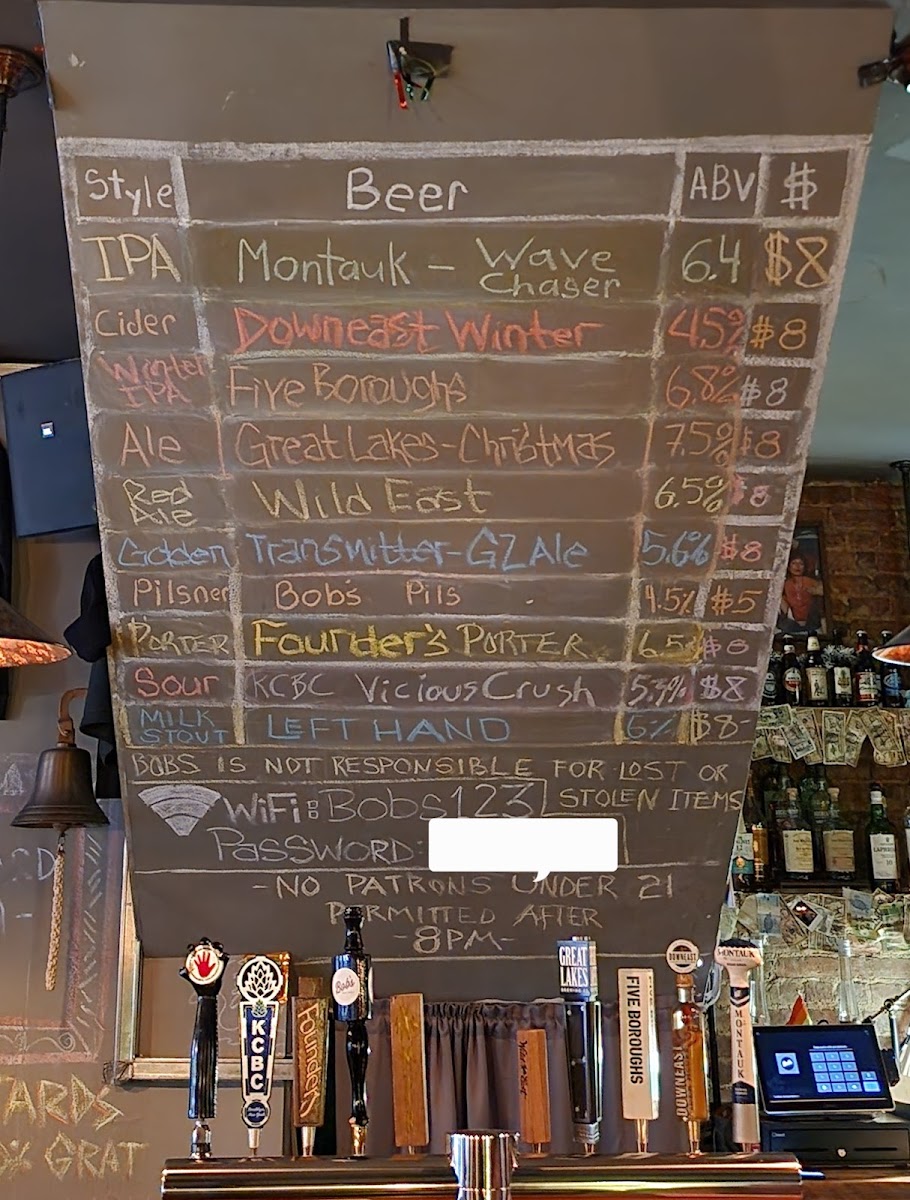 Style Beer ABV $
IPA Montauk - Wave Chaser 6.4 $8
Cider Downeast Winter 4.5% $8
Winter IPA Five Boroughs 6.8% $8
Ale Great Lakes-Christmas 7.5% $8
Red Ale Wild East 6.5% $8
Golden Transmitter-G2 Ale 5.6% $8
Pilsner Bob's Pils 4.5% $5
PORTER Founder's PORTER 6.5
Sour KCBC Vicious Crush 5.5% $8
MILK STOUT LEFT HAND 6% $8-
BOBS IS NOT RESPONSIBLE FOR LOST OR
STOLEN ITEMS
WiFi: Bobs123
PASSWORD:
-NO PATRONS UNDER 21
PERMITTED AFTER
-8PM-
KCBC
Founders
Bobs
GREAT LAKES
FIVE BOROUGHS
DOWNEAST
DOWNEAST
MONTAUK
MONTAUK
ARDS
GRAT